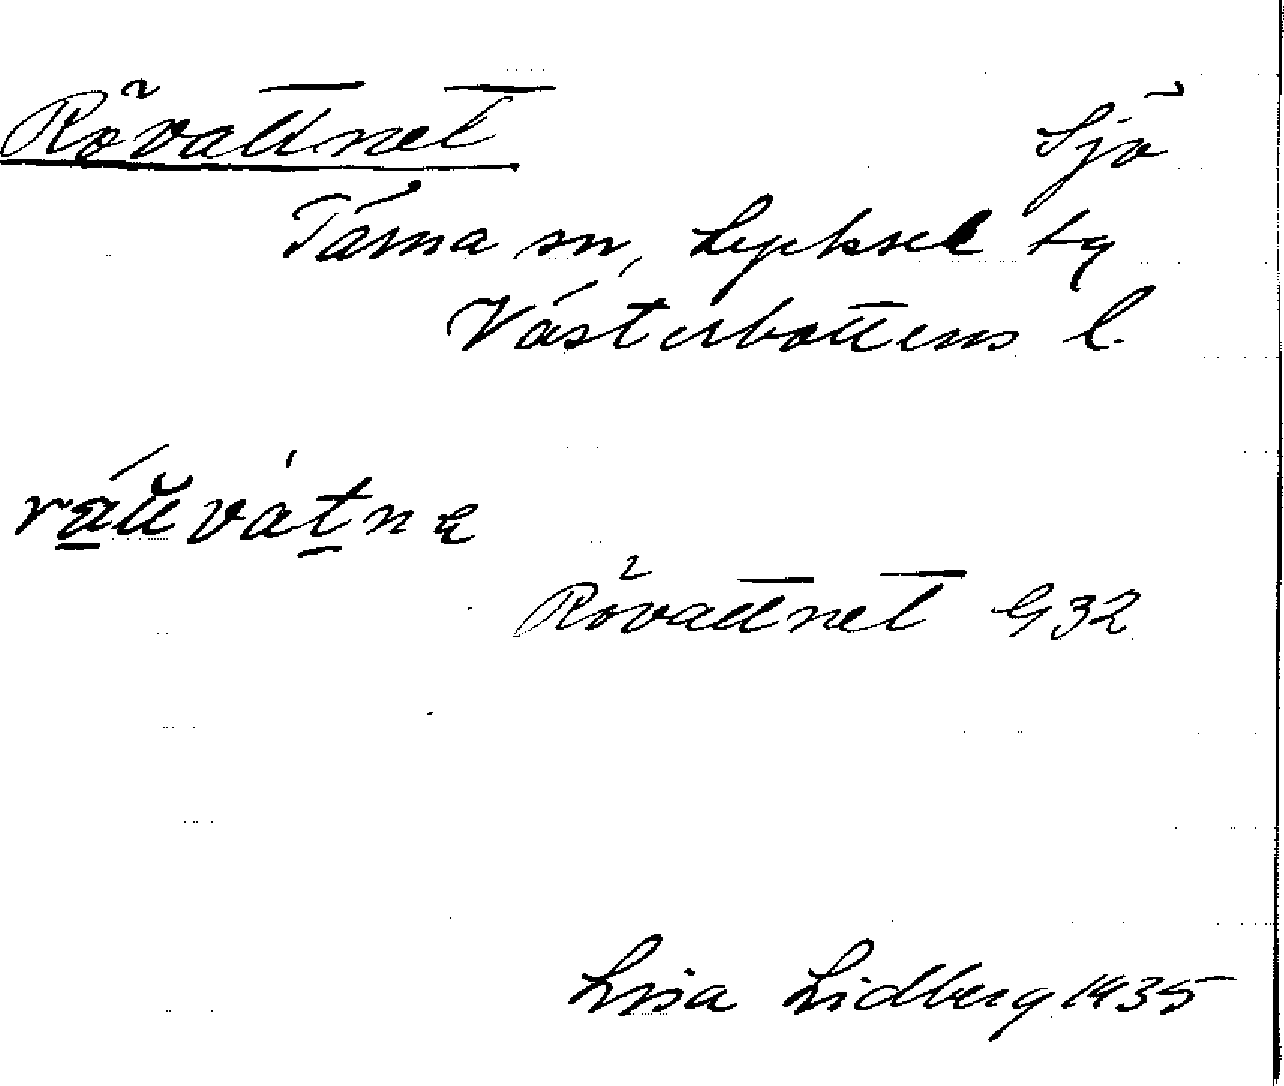 Rövattnet Sjö
Tärna sn, Lycksel tg
Västerbottens l.
Rövattnet G32
Lisa Lidberg 1935